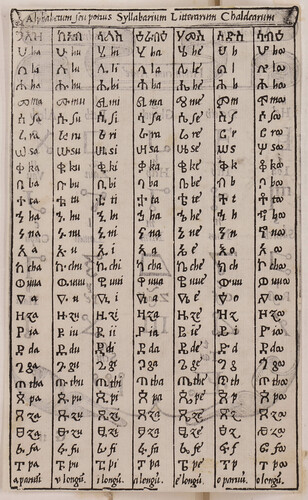 Alphabetum seu potius Syllabarium Litterarum Chaldearum
ግእዝ ካዕብ ሣልስ ራብዕ ሃምስ ሳድስ ሳብዕ
ሀ ha ሁ hu ሂ hi ሃ ha ሄ he ህ h ሆ hω
ለ la ሉ lu ሊ li ላ la ሌ le ል l ሎ lω
ሐ ha ሑ hu ሒ hi ሓ ha ሔ he ሕ h ሖ hω
መ ma ሙ mu ሚ mi ማ ma ሜ me ም m ሞ mω
ሰ sa ሱ su ሲ si ሳ sa ሴ se ስ s ሶ sω
ረ ra ሩ ru ሪ ri ራ ra ሬ re ር r ሮ rω
ሠ sa ሡ su ሢ si ሣ sa ሤ se ሥ s ሦ sω
ቀ ka ቁ ku ቂ ki ቃ ka ቄ ke ቅ k ቆ kω
በ ba ቡ bu ቢ bi ባ ba ቤ be ብ b ቦ bω
ተ ta ቱ tu ቲ ti ታ ta ቴ te ት t ቶ tω
ኀ ha ኁ hu ኂ hi ኃ ha ኄ he ኅ h ኆ hω
ነ na ኑ nu ኒ ni ና na ኔ ne ን n ኖ nω
አ a ኡ u ኢ i ኣ a ኤ e እ o ኦ ω
ከ cha ኩ chu ኪ chi ካ cha ኬ che ክ ch ኮ chω
ወ uua ዉ uuu ዊ uui ዋ uua ዌ uue ው uu ዎ uuω
ዐ a ዑ u ዒ i ዓ a ዔ e ዕ o ዖ ω
ዘ za ዙ zu ዚ zi ዛ za ዜ ze ዝ z ዞ zω
የ ia ዩ iu ዪ ii ያ ia ዬ ie ይ i ዮ iω
ደ da ዱ du ዲ di ዳ da ዴ de ድ d ዶ dω
ገ ga ጉ gu ጊ gi ጋ ga ጌ ge ግ g ጎ gω
ጠ tha ጡ thu ጢ thi ጣ tha ጤ the ጥ th ጦ thω
ጰ pa ጱ pu ጲ pi ጳ pa ጴ pe ጵ p ጶ pω
ጸ za ጹ zu ጺ zi ጻ za ጼ ze ጽ z ጾ zω
ፀ za ፁ zu ፂ zi ፃ za ፄ ze ፅ z ፆ zω
ፈ fa ፉ fu ፊ fi ፋ fa ፌ fe ፍ f ፎ fω
ፐ pa ፑ pu ፒ pi ፓ pa ፔ pe ፕ p ፖ pω
a paruū. v longū. i longū. a longū. e longū. o paruū. o longū.